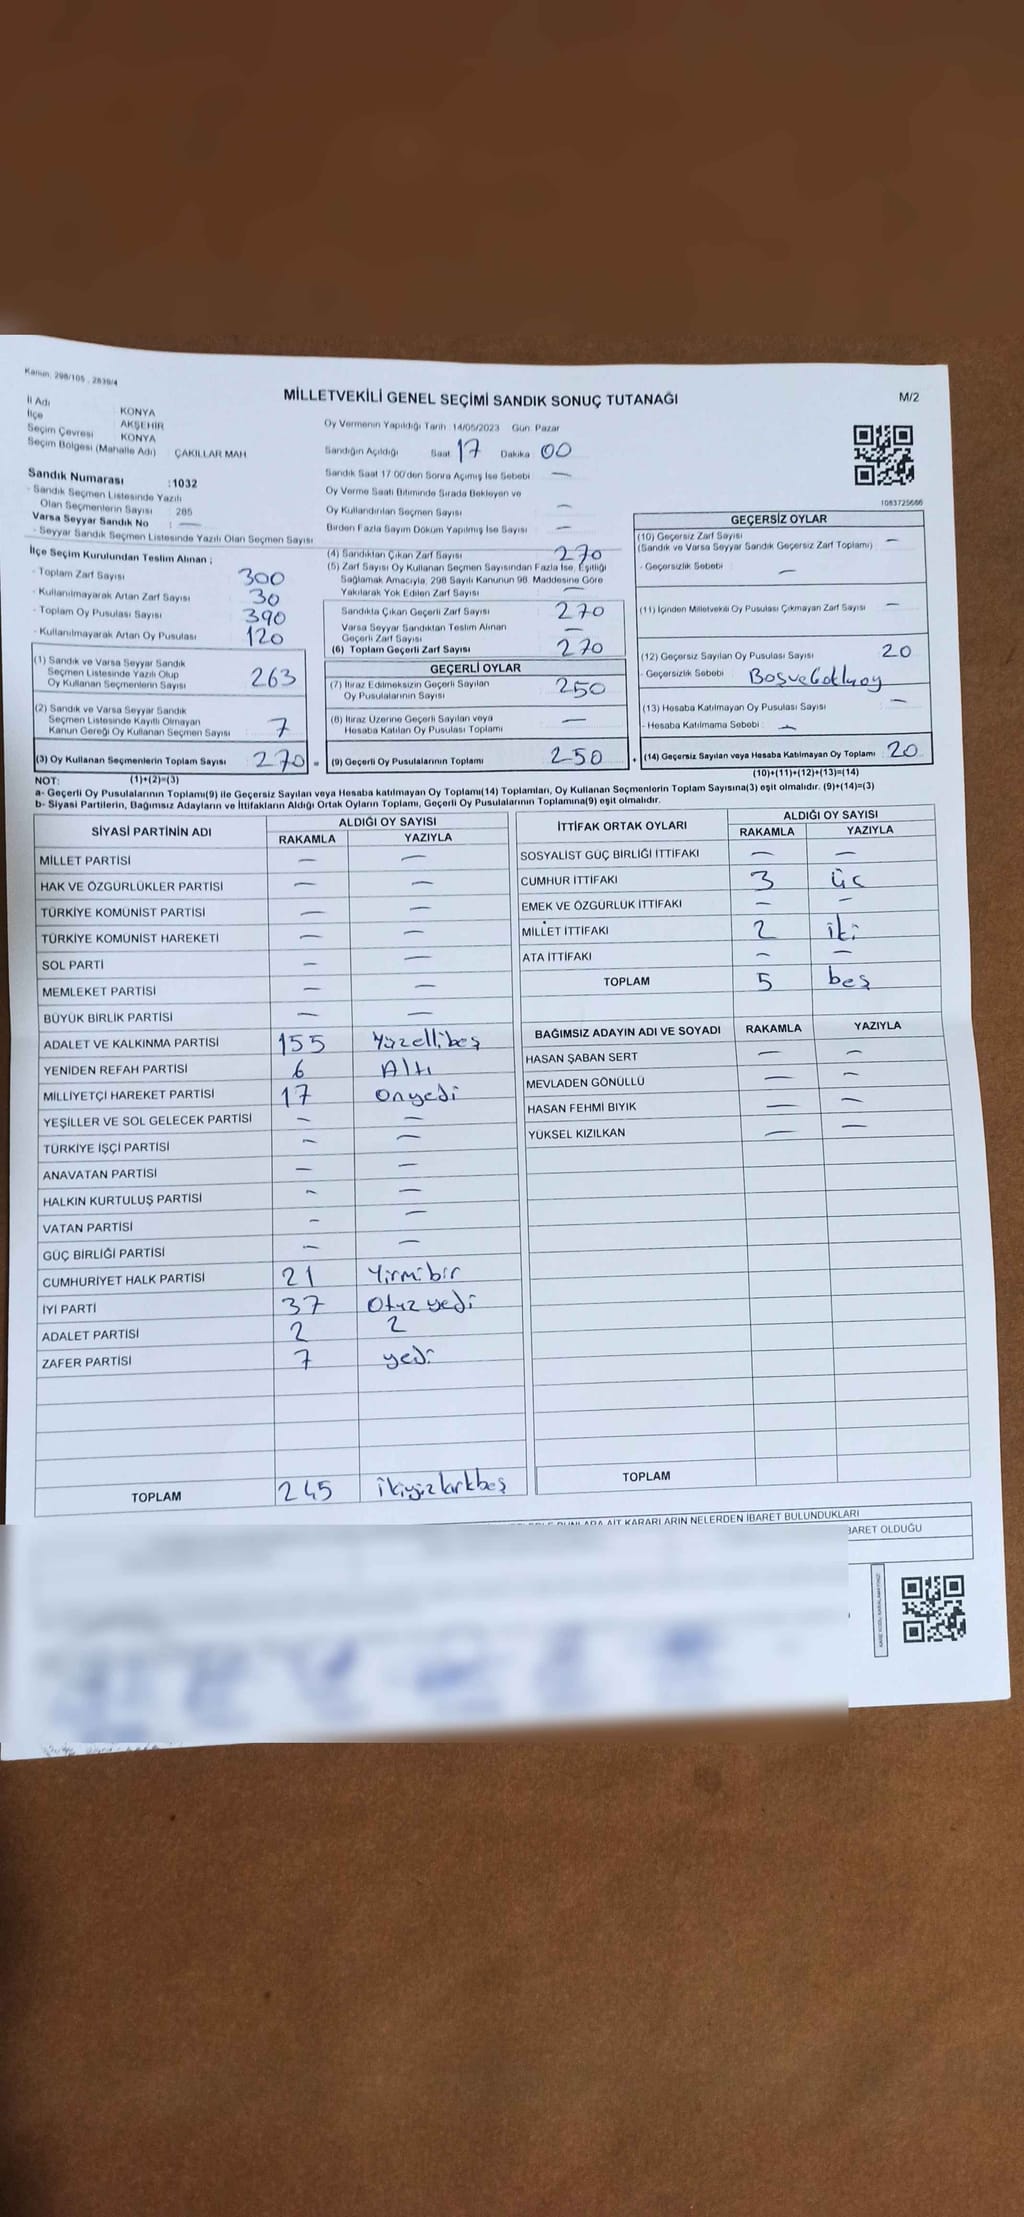 Kanun: 298/105 - 2839/4
MİLLETVEKİLİ GENEL SEÇİMİ SANDIK SONUÇ TUTANAĞI
M/2
İl Adı KONYA
İlçe AKŞEHİR
Seçim Çevresi KONYA
Seçim Bölgesi (Mahalle Adı) ÇAKILLAR MAH
Sandık Numarası :1032
- Sandık Seçmen Listesinde Yazılı
Olan Seçmenlerin Sayısı : 285
Varsa Seyyar Sandık No : —
- Seyyar Sandık Seçmen Listesinde Yazılı Olan Seçmen Sayısı
Oy Vermenin Yapıldığı Tarih 14/05/2023 Gün Pazar
Sandığın Açıldığı Saat 17 Dakika 00
Sandık Saat 17:00'den Sonra Açımış İse Sebebi —
Oy Verme Saati Bitiminde Sırada Bekleyen ve
Oy Kullandırılan Seçmen Sayısı —
Birden Fazla Sayım Döküm Yapılmış İse Sayısı —
1083725666
İlçe Seçim Kurulundan Teslim Alınan ;
- Toplam Zarf Sayısı 300
- Kullanılmayarak Artan Zarf Sayısı 30
- Toplam Oy Pusulası Sayısı 390
- Kullanılmayarak Artan Oy Pusulası 120
(1) Sandık ve Varsa Seyyar Sandık
Seçmen Listesinde Yazılı Olup
Oy Kullanan Seçmenlerin Sayısı 263
(2) Sandık ve Varsa Seyyar Sandık
Seçmen Listesinde Kayıtlı Olmayan
Kanun Gereği Oy Kullanan Seçmen Sayısı 7
(3) Oy Kullanan Seçmenlerin Toplam Sayısı 270
(4) Sandıktan Çıkan Zarf Sayısı 270
(5) Zarf Sayısı Oy Kullanan Seçmen Sayısından Fazla İse, Eşitliği
Sağlamak Amacıyla, 298 Sayılı Kanunun 98. Maddesine Göre
Yakılarak Yok Edilen Zarf Sayısı —
Sandıkta Çıkan Geçerli Zarf Sayısı 270
Varsa Seyyar Sandıktan Teslim Alınan
Geçerli Zarf Sayısı —
(6) Toplam Geçerli Zarf Sayısı 270
GEÇERLİ OYLAR
(7) İtiraz Edilmeksizin Geçerli Sayılan
Oy Pusulalarının Sayısı 250
(8) İtiraz Üzerine Geçerli Sayılan veya
Hesaba Katılan Oy Pusulası Toplamı —
= (9) Geçerli Oy Pusulalarının Toplamı 250
GEÇERSİZ OYLAR
(10) Geçersiz Zarf Sayısı
(Sandık ve Varsa Seyyar Sandık Geçersiz Zarf Toplamı) —
- Geçersizlik Sebebi : —
(11) İçinden Milletvekili Oy Pusulası Çıkmayan Zarf Sayısı —
(12) Geçersiz Sayılan Oy Pusulası Sayısı 20
- Geçersizlik Sebebi :
(13) Hesaba Katılmayan Oy Pusulası Sayısı —
- Hesaba Katılmama Sebebi : —
+ (14) Geçersiz Sayılan veya Hesaba Katılmayan Oy Toplamı 20
NOT: (1)+(2)=(3) (10)+(11)+(12)+(13)=(14)
a- Geçerli Oy Pusulalarının Toplamı(9) ile Geçersiz Sayılan veya Hesaba katılmayan Oy Toplamı(14) Toplamları, Oy Kullanan Seçmenlerin Toplam Sayısına(3) eşit olmalıdır. (9)+(14)=(3)
b- Siyasi Partilerin, Bağımsız Adayların ve İttifakların Aldığı Ortak Oyların Toplamı, Geçerli Oy Pusulalarının Toplamına(9) eşit olmalıdır.
SİYASİ PARTİNİN ADI ALDIĞI OY SAYISI
RAKAMLA YAZIYLA
MİLLET PARTİSİ — —
HAK VE ÖZGÜRLÜKLER PARTİSİ — —
TÜRKİYE KOMÜNİST PARTİSİ — —
TÜRKİYE KOMÜNİST HAREKETİ — —
SOL PARTİ — —
MEMLEKET PARTİSİ — —
BÜYÜK BİRLİK PARTİSİ — —
ADALET VE KALKINMA PARTİSİ 155 Yüzellibeş
YENİDEN REFAH PARTİSİ 6 Altı
MİLLİYETÇİ HAREKET PARTİSİ 17 Onyedi
YEŞİLLER VE SOL GELECEK PARTİSİ — —
TÜRKİYE İŞÇİ PARTİSİ — —
ANAVATAN PARTİSİ — —
HALKIN KURTULUŞ PARTİSİ — —
VATAN PARTİSİ — —
GÜÇ BİRLİĞİ PARTİSİ — —
CUMHURİYET HALK PARTİSİ 21 Yirmibir
İYİ PARTİ 37 Otuzyedi
ADALET PARTİSİ 2 2
ZAFER PARTİSİ 7 yedi
TOPLAM 245 ikiyüzkırkbeş
İTTİFAK ORTAK OYLARI ALDIĞI OY SAYISI
RAKAMLA YAZIYLA
SOSYALİST GÜÇ BİRLİĞİ İTTİFAKI — —
CUMHUR İTTİFAKI 3 üç
EMEK VE ÖZGÜRLÜK İTTİFAKI — —
MİLLET İTTİFAKI 2 iki
ATA İTTİFAKI — —
TOPLAM 5 beş
BAĞIMSIZ ADAYIN ADI VE SOYADI RAKAMLA YAZIYLA
HASAN ŞABAN SERT — —
MEVLADEN GÖNÜLLÜ — —
HASAN FEHMİ BIYIK — —
YÜKSEL KIZILKAN — —
TOPLAM
AİT KARARLARIN NELERDEN İBARET BULUNDUKLARI
BARET OLDUĞU